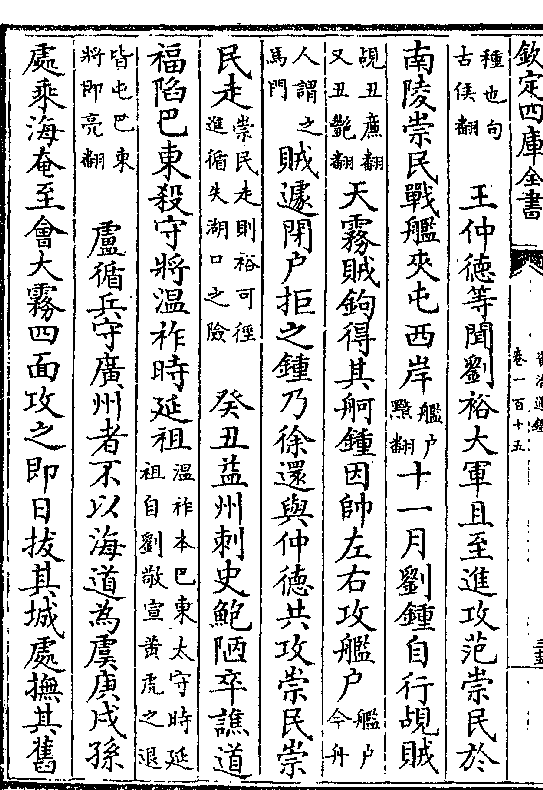 欽定四庫全書
資治通鑑
卷一百十五
種也句古侯翻　王仲德等聞劉裕大軍且至進攻范崇民於
南陵崇民戰艦夾屯西岸艦户黯翻十一月劉鍾自行覘賊
覘丑廉翻又丑艷翻天霧賊鉤得其舸鍾因帥左右攻艦户艦户今舟
人謂之馬門賊遽閉户拒之鍾乃徐還與仲德共攻崇民崇
民走崇民走則裕可徑進循失湖口之險　癸丑益州刺史鮑陋卒譙道
福陷巴東殺守將温祚時延祖温祚本巴東太守時延祖自劉敬宣黄虎之退
皆屯巴東將即亮翻　盧循兵守廣州者不以海道為虞庚戌孫
處乘海奄至會大霧四面攻之即日拔其城處撫其舊